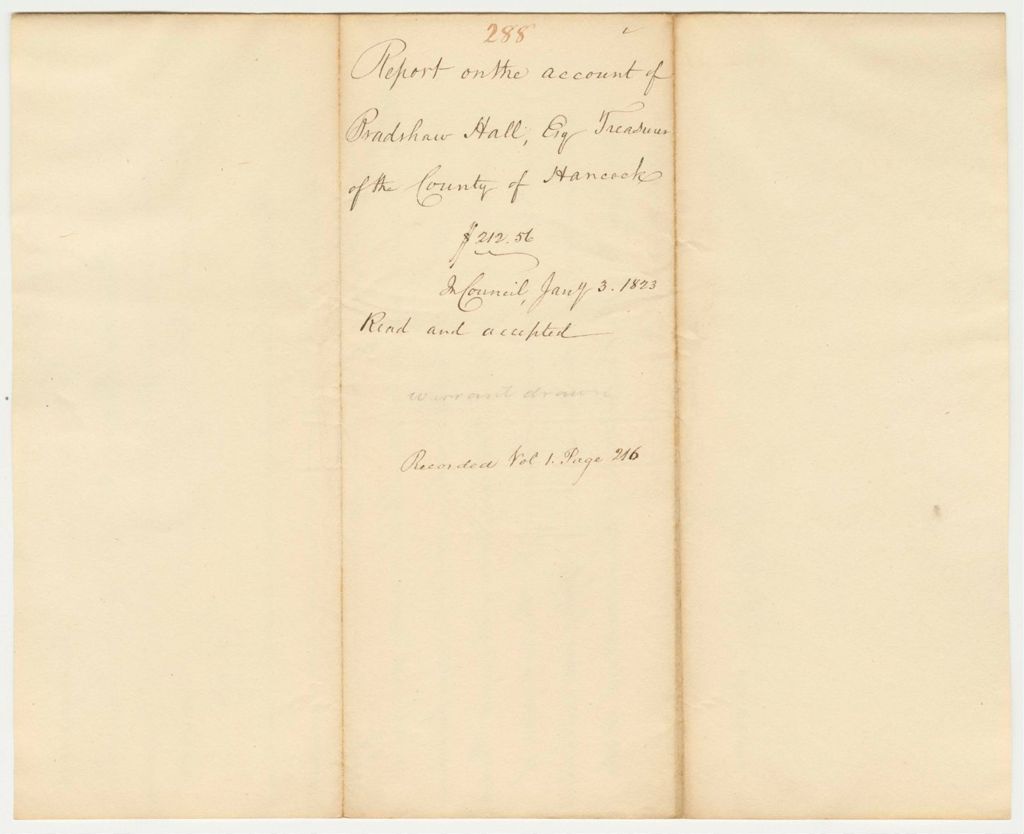 288
Report on the account of
Bradshaw Hall, Esq Treasurer
of the County of Hancock
$212.56
In Council, Jany 3. 1823
Read and accepted
warrant drawn
Recorded Vol 1. Page 216